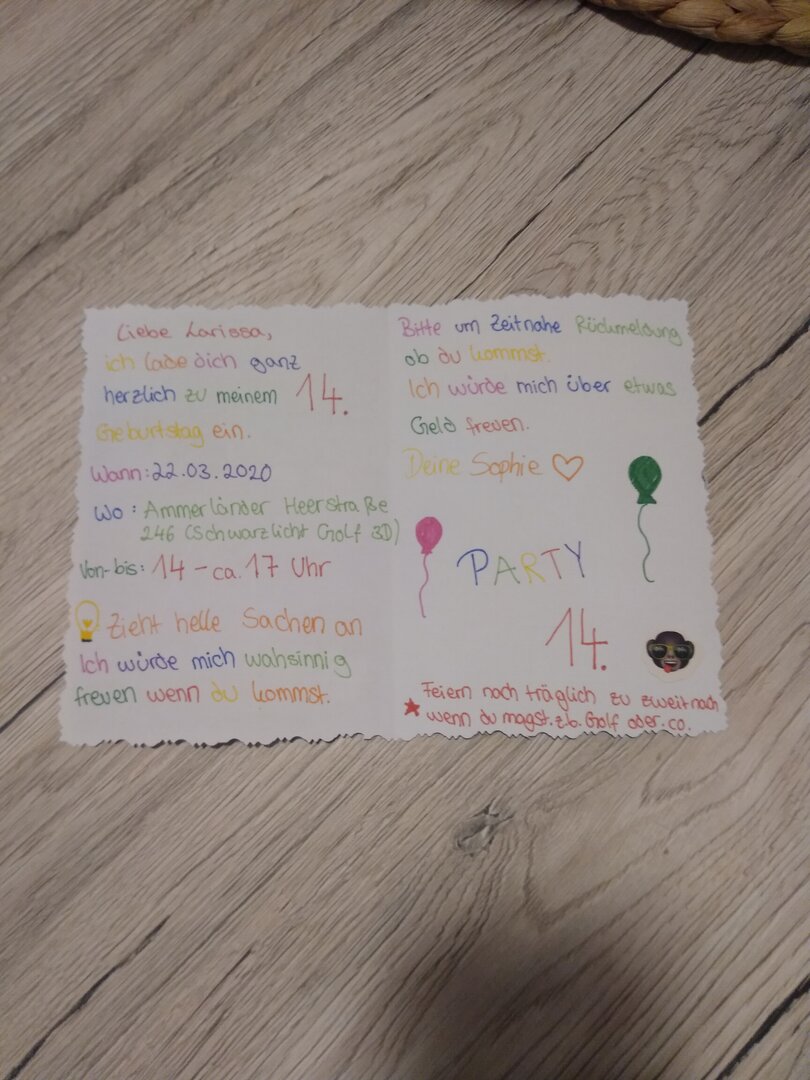 Liebe Larissa,
ich lade dich ganz
herzlich zu meinem 14.
Geburtstag ein.
Wann: 22.03.2020
Wo: Ammerländer Heerstraße
246 (Schwarzlicht Golf 3D)
Von-bis: 14 - ca. 17 Uhr
Zieht helle Sachen an
Ich würde mich wahsinnig
freuen wenn du kommst.
Bitte um Zeitnahe Rückmeldung
ob du kommst.
Ich würde mich über etwas
Geld freuen.
Deine Sophie ♡
PARTY
14.
★ Feiern noch träglich zu zweit nach
wenn du magst. z.b. Golf oder. co.